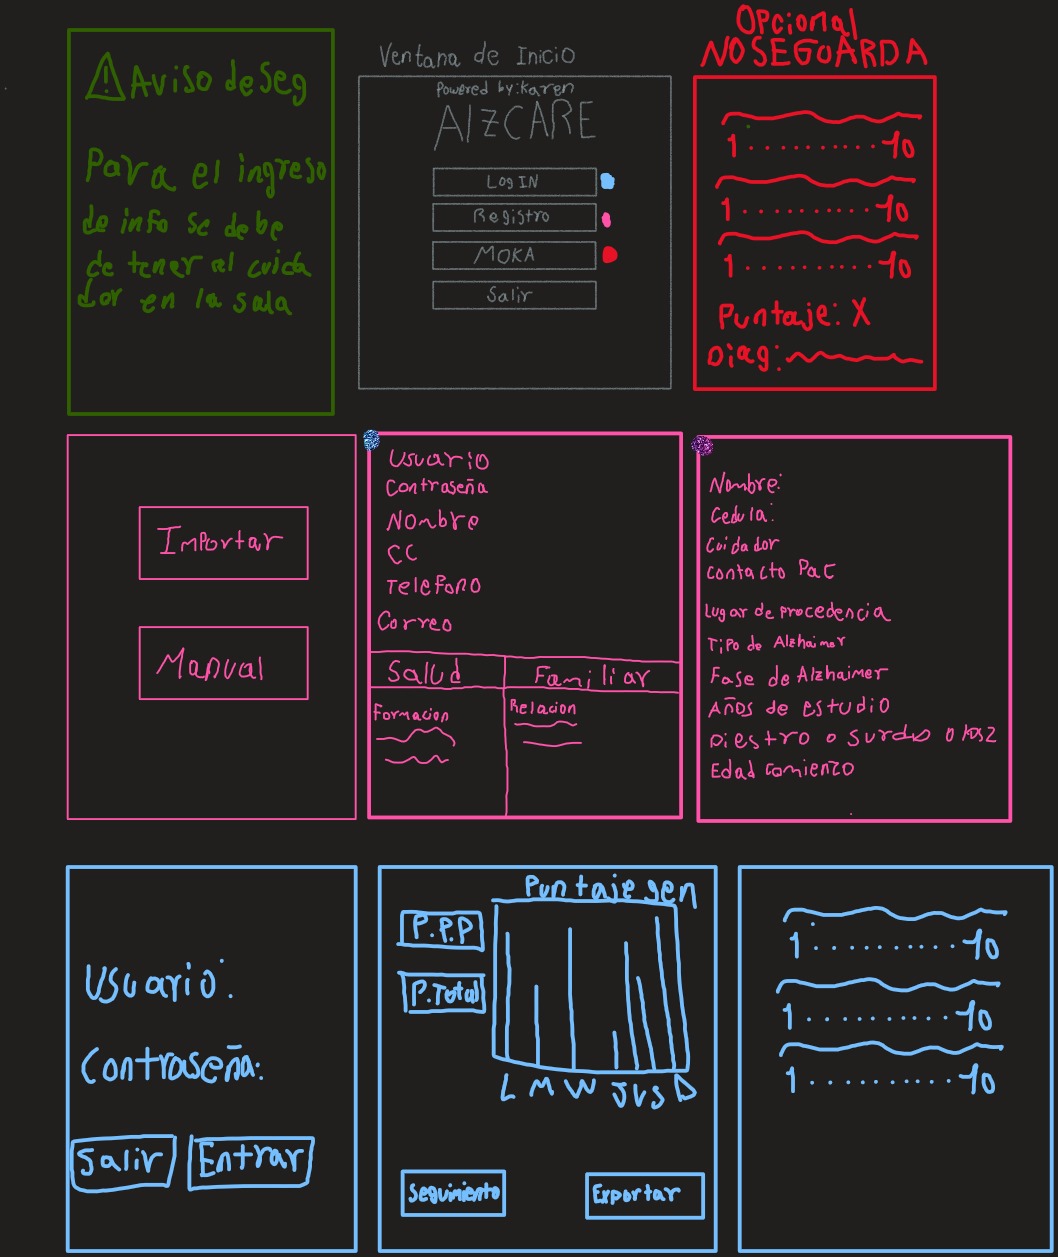 Aviso de Seg
Para el ingreso
de info se debe
de tener al cuida
dor en la sala
Ventana de Inicio
Powered by: karen
AlZCARE
Log IN
Registro
MOKA
Salir
Opcional
NO SE GUARDA
1 . . . . . . . . . . 10
1 . . . . . . . . . . 10
1 . . . . . . . . . . 10
Puntaje: X
Diag:
Importar
Manual
Usuario
Contraseña
Nombre
CC
Telefono
Correo
Salud
Familiar
Formacion
Relacion
Nombre:
Cedula:
Cuidador
Contacto Pac
Lugar de procedencia
Tipo de Alzhaimer
Fase de Alzhaimer
Años de estudio
Diestro o surdo o los 2
Edad comienzo
Usuario:
Contraseña:
Salir
Entrar
Puntaje gen
P.P.P
P.Total
L M W J V S D
Seguimiento
Exportar
1 . . . . . . . . . . 10
1 . . . . . . . . . . 10
1 . . . . . . . . . . 10